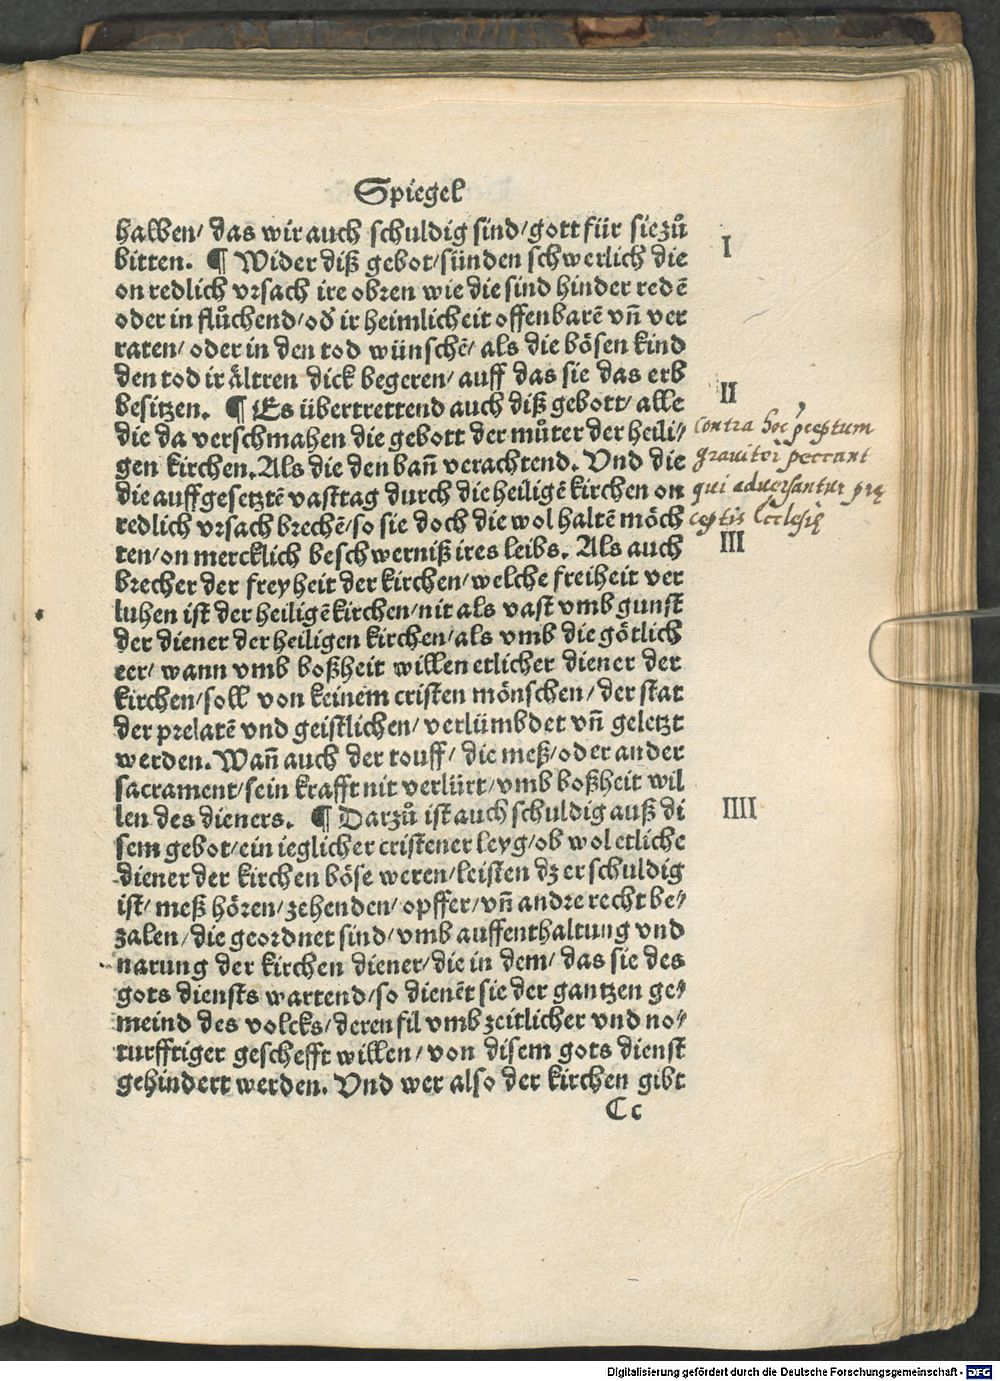 Spiegel
halben/ das wir auch schuldig sind/ gott für sie zů
bitten. ¶ Wider diß gebot/ sünden schwerlich die
on redlich vrsach ire obren wie die sind hinder redē
oder in flůchend/ oď ir heimlicheit offenbarē vn̄ ver
raten/ oder in den tod wünschē/ als die bösen kind
den tod ir ältren dick begeren/ auff das sie das erb
besitzen. ¶ Es übertrettend auch diß gebott/ alle
die da verschmahen die gebott der můter der heili⸗
gen kirchen. Als die den ban̄ verachtend. Vnd die
die auffgesetztē vasttag durch die heiligē kirchen on
redlich vrsach brechē/ so sie doch die wol haltē möch
ten/ on mercklich beschwerniß ires leibs. Als auch
brecher der freyheit der kirchen/ welche freiheit ver
luhen ist der heiligē kirchen/ nit als vast vmb gunst
der diener der heiligen kirchen/ als vmb die götlich
eer/ wann vmb boßheit willen etlicher diener der
kirchen/ soll von keinem cristen mönschen/ der stat
der prelatē vnd geistlichen/ verlümbdet vn̄ geletzt
werden. Wan̄ auch der touff/ die meß/ oder ander
sacrament/ sein krafft nit verlürt/ vmb boßheit wil
len des dieners. ¶ Darzů ist auch schuldig auß di
sem gebot/ ein ieglicher cristener leyg/ ob wol etliche
diener der kirchen böse weren/ leisten dz er schuldig
ist/ meß hören/ zehenden/ opffer/ vn̄ andre recht be⸗
zalen/ die geordnet sind/ vmb auffenthaltung vnd
narung der kirchen diener/ die in dem/ das sie des
gots diensts wartend/ so dienēt sie der gantzen ge⸗
meind des volcks/ deren fil vmb zeitlicher vnd no⸗
turfftiger geschefft willen/ von disem gots dienst
gehindert werden. Vnd wer also der kirchen gibt
Cc
I
II
contra hoc p̄ceptum
grauiter peccant
qui aduersantur prę
ceptis Ecclesię
III
IIII
Digitalisierung gefördert durch die Deutsche Forschungsgemeinschaft - DFG